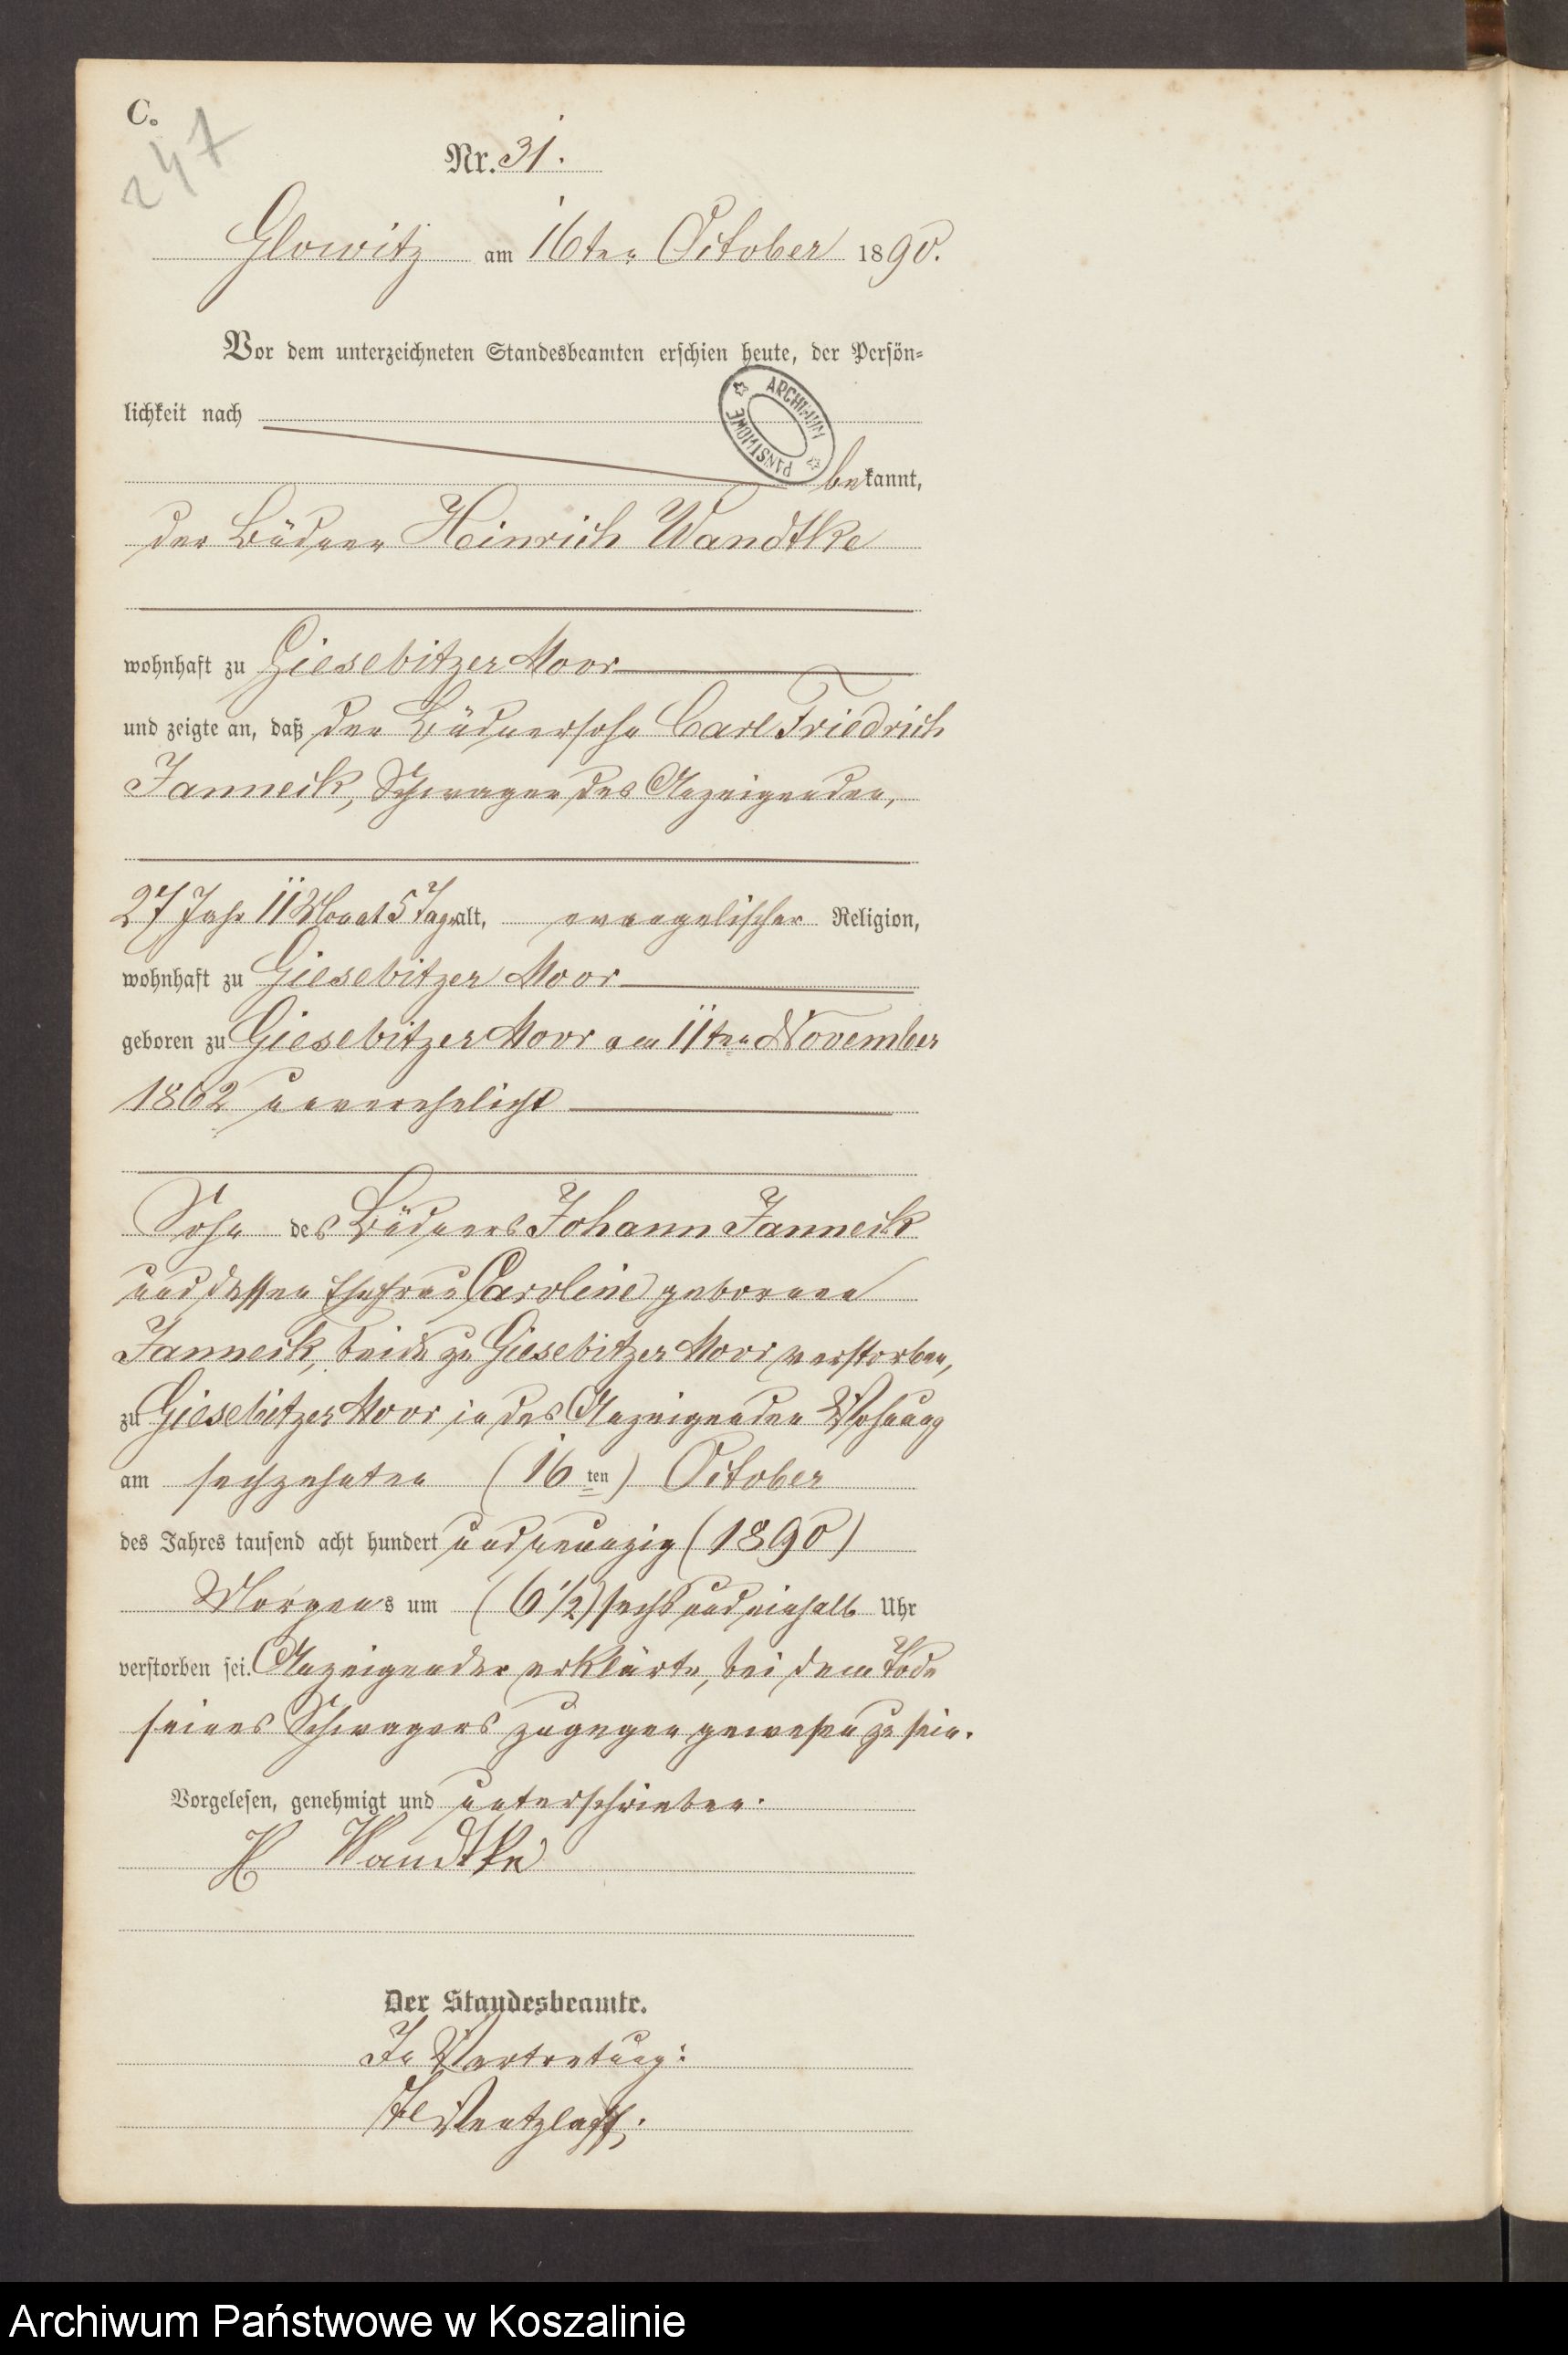 C.
247
Nr. 31.
Glowitz am 16ten October 1890.
Vor dem unterzeichneten Standesbeamten erschien heute, der Persön-
lichkeit nach
ARCHIWUM PAŃSTWOWE
bekannt,
der Büdner Heinrich Wandtke
wohnhaft zu Giesebitzer Moor
und zeigte an, daß der Büdnersohn Carl Friedrich
Janneck, Schwager des Anzeigenden,
27 Jahr 11 Monat 5 Tage alt, evangelischer Religion,
wohnhaft zu Giesebitzer Moor
geboren zu Giesebitzer Moor am 11ten November
1862 unverehelicht
Sohn des Büdners Johann Janneck
und dessen Ehefrau Caroline geborenen
Janneck, beide zu Giesebitzer Moor verstorben,
zu Giesebitzer Moor in des Anzeigenden Wohnung
am sechzehnten (16 ten) October
des Jahres tausend acht hundert und neunzig (1890)
Morgens um (6 1/2) sechs und einhalb Uhr
verstorben sei. Anzeigender erklärte, bei dem Tode
seines Schwagers zugegen gewesen zu sein.
Vorgelesen, genehmigt und unterschrieben.
H Wandtke
Der Standesbeamte.
In Vertretung:
Ventzlaff.
Archiwum Państwowe w Koszalinie